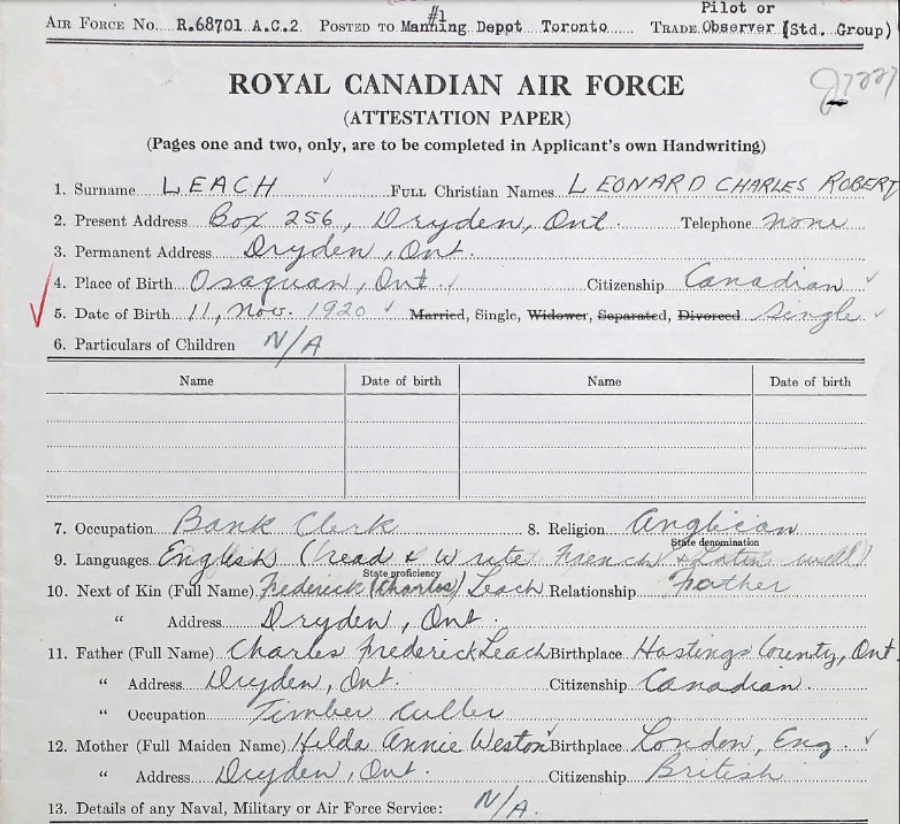 #1 Pilot or
AIR FORCE No. R.68701 A.C.2. POSTED TO Manning Depot Toronto TRADE Observer (Std. Group)
ROYAL CANADIAN AIR FORCE
J7227
(ATTESTATION PAPER)
(Pages one and two, only, are to be completed in Applicant's own Handwriting)
1. Surname LEACH FULL Christian Names LEONARD CHARLES ROBERT
2. Present Address Box 256, Dryden, Ont. Telephone none
3. Permanent Address Dryden, Ont.
4. Place of Birth Osaquan, Ont. Citizenship Canadian
5. Date of Birth 11, Nov. 1920 Married, Single, Widower, Separated, Divorced Single
6. Particulars of Children N/A
Name Date of birth Name Date of birth
7. Occupation Bank Clerk 8. Religion Anglican
State denomination
9. Languages English (read & write French & Latin well)
State proficiency
10. Next of Kin (Full Name) Frederick (Charles) Leach Relationship Father
" Address Dryden, Ont.
11. Father (Full Name) Charles Frederick Leach Birthplace Hastings County, Ont.
" Address Dryden, Ont. Citizenship Canadian.
" Occupation Timber Culler
12. Mother (Full Maiden Name) Hilda Annie Weston Birthplace London, Eng.
" Address Dryden, Ont. Citizenship British
13. Details of any Naval, Military or Air Force Service: N/A.